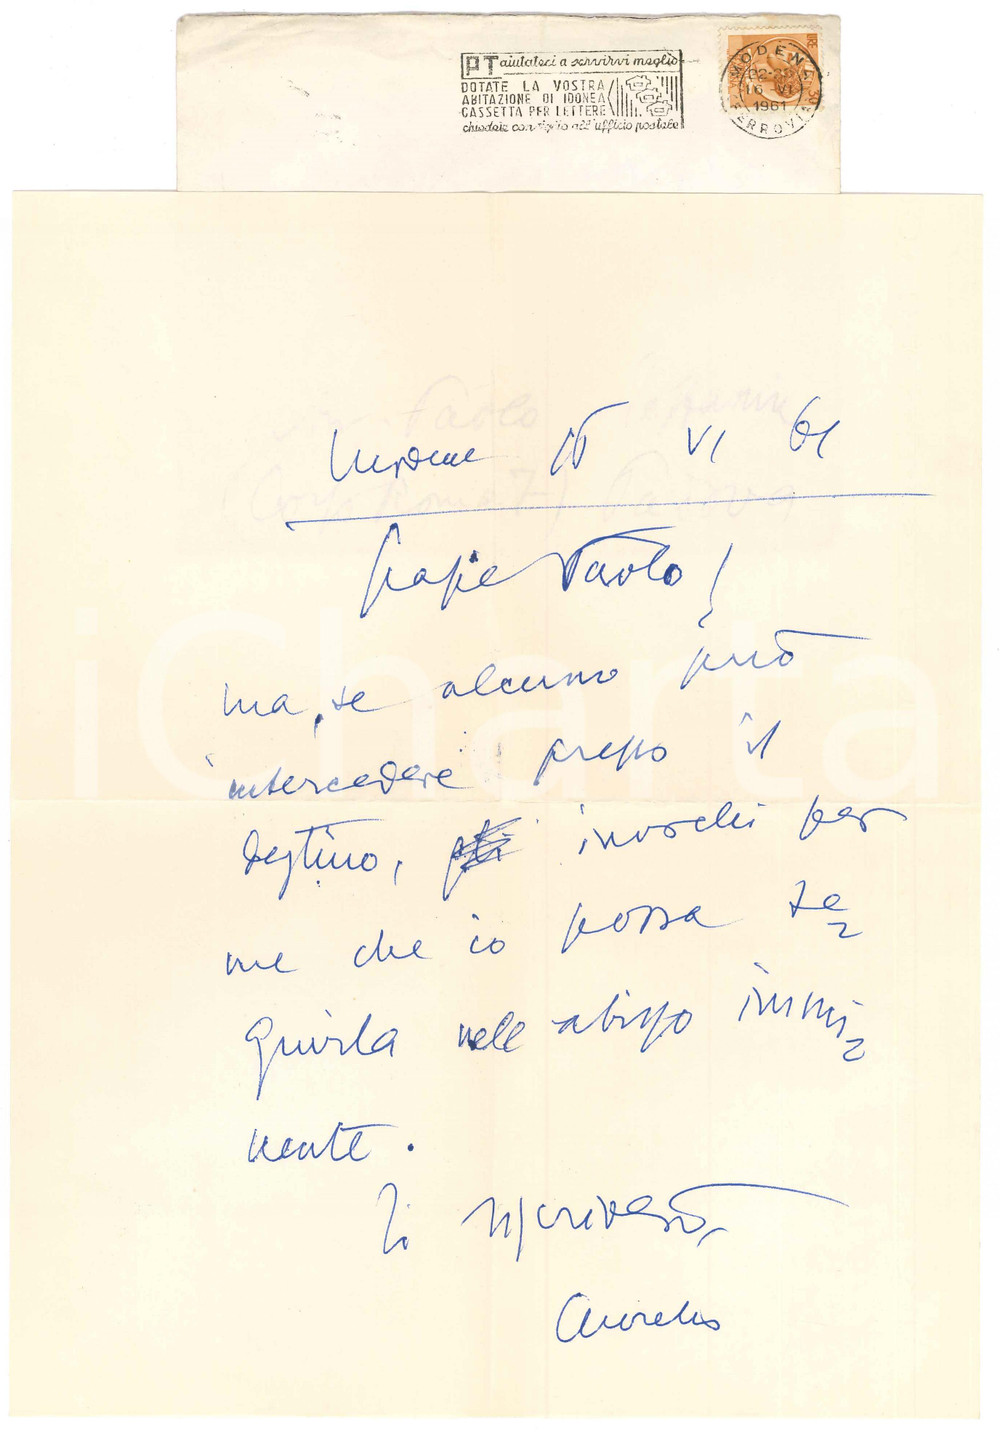 PT aiutateci a servirvi meglio
DOTATE LA VOSTRA
ABITAZIONE DI IDONEA
CASSETTA PER LETTERE
chiedete consiglio all'ufficio postale
MODENA
16 VI
1961
FERROVIA
Modena 16 VI 61
Grazie Paolo!
ma, se alcuno può
intercedere presso il
destino, invochi per
me che io possa se=
guirla nell'abisso immi=
nente.
Ti riscriverò,
Aurelio
Paolo
Padova
iCharta